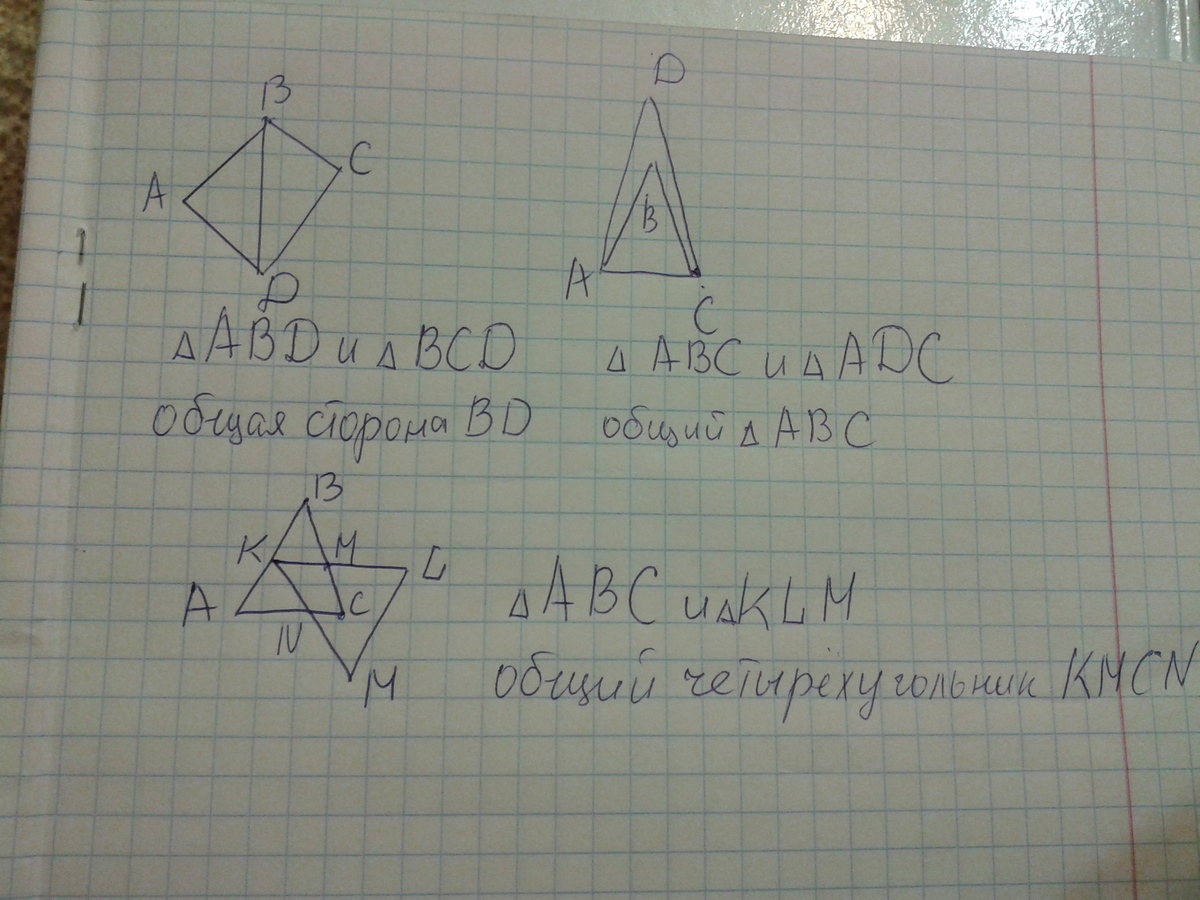 B
A
C
D
△ABD и △BCD
общая сторона BD
D
B
A
C
△ ABC и △ADC
общий △ ABC
B
K M L
A C
N
M
△ABC и △KLM
общий четырёхугольник KMCN